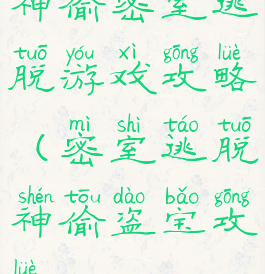 神偷密室逃
tuō yóu xì gōng lüè
脱游戏攻略
mì shì táo tuō
（密室逃脱
shén tōu dào bǎo gōng
神偷盗宝攻
lüè